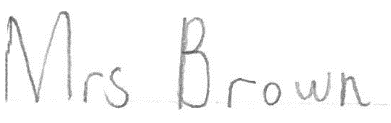 Mrs Brown